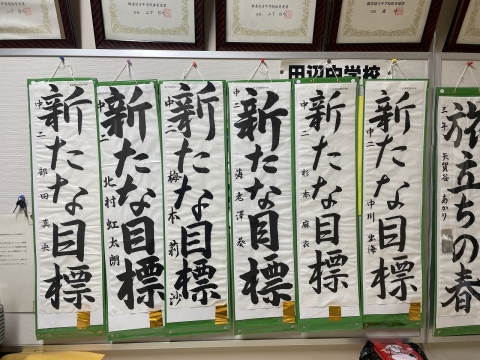 田沼中学校
新たな目標
中二
部田真央
新たな目標
中二
北村虹太朗
新たな目標
中二
梅本莉沙
新たな目標
中二
海老澤奏
新たな目標
中二
杉本麻衣
新たな目標
中二
中川出海
旅立ちの春
三年
矢賀谷あかり